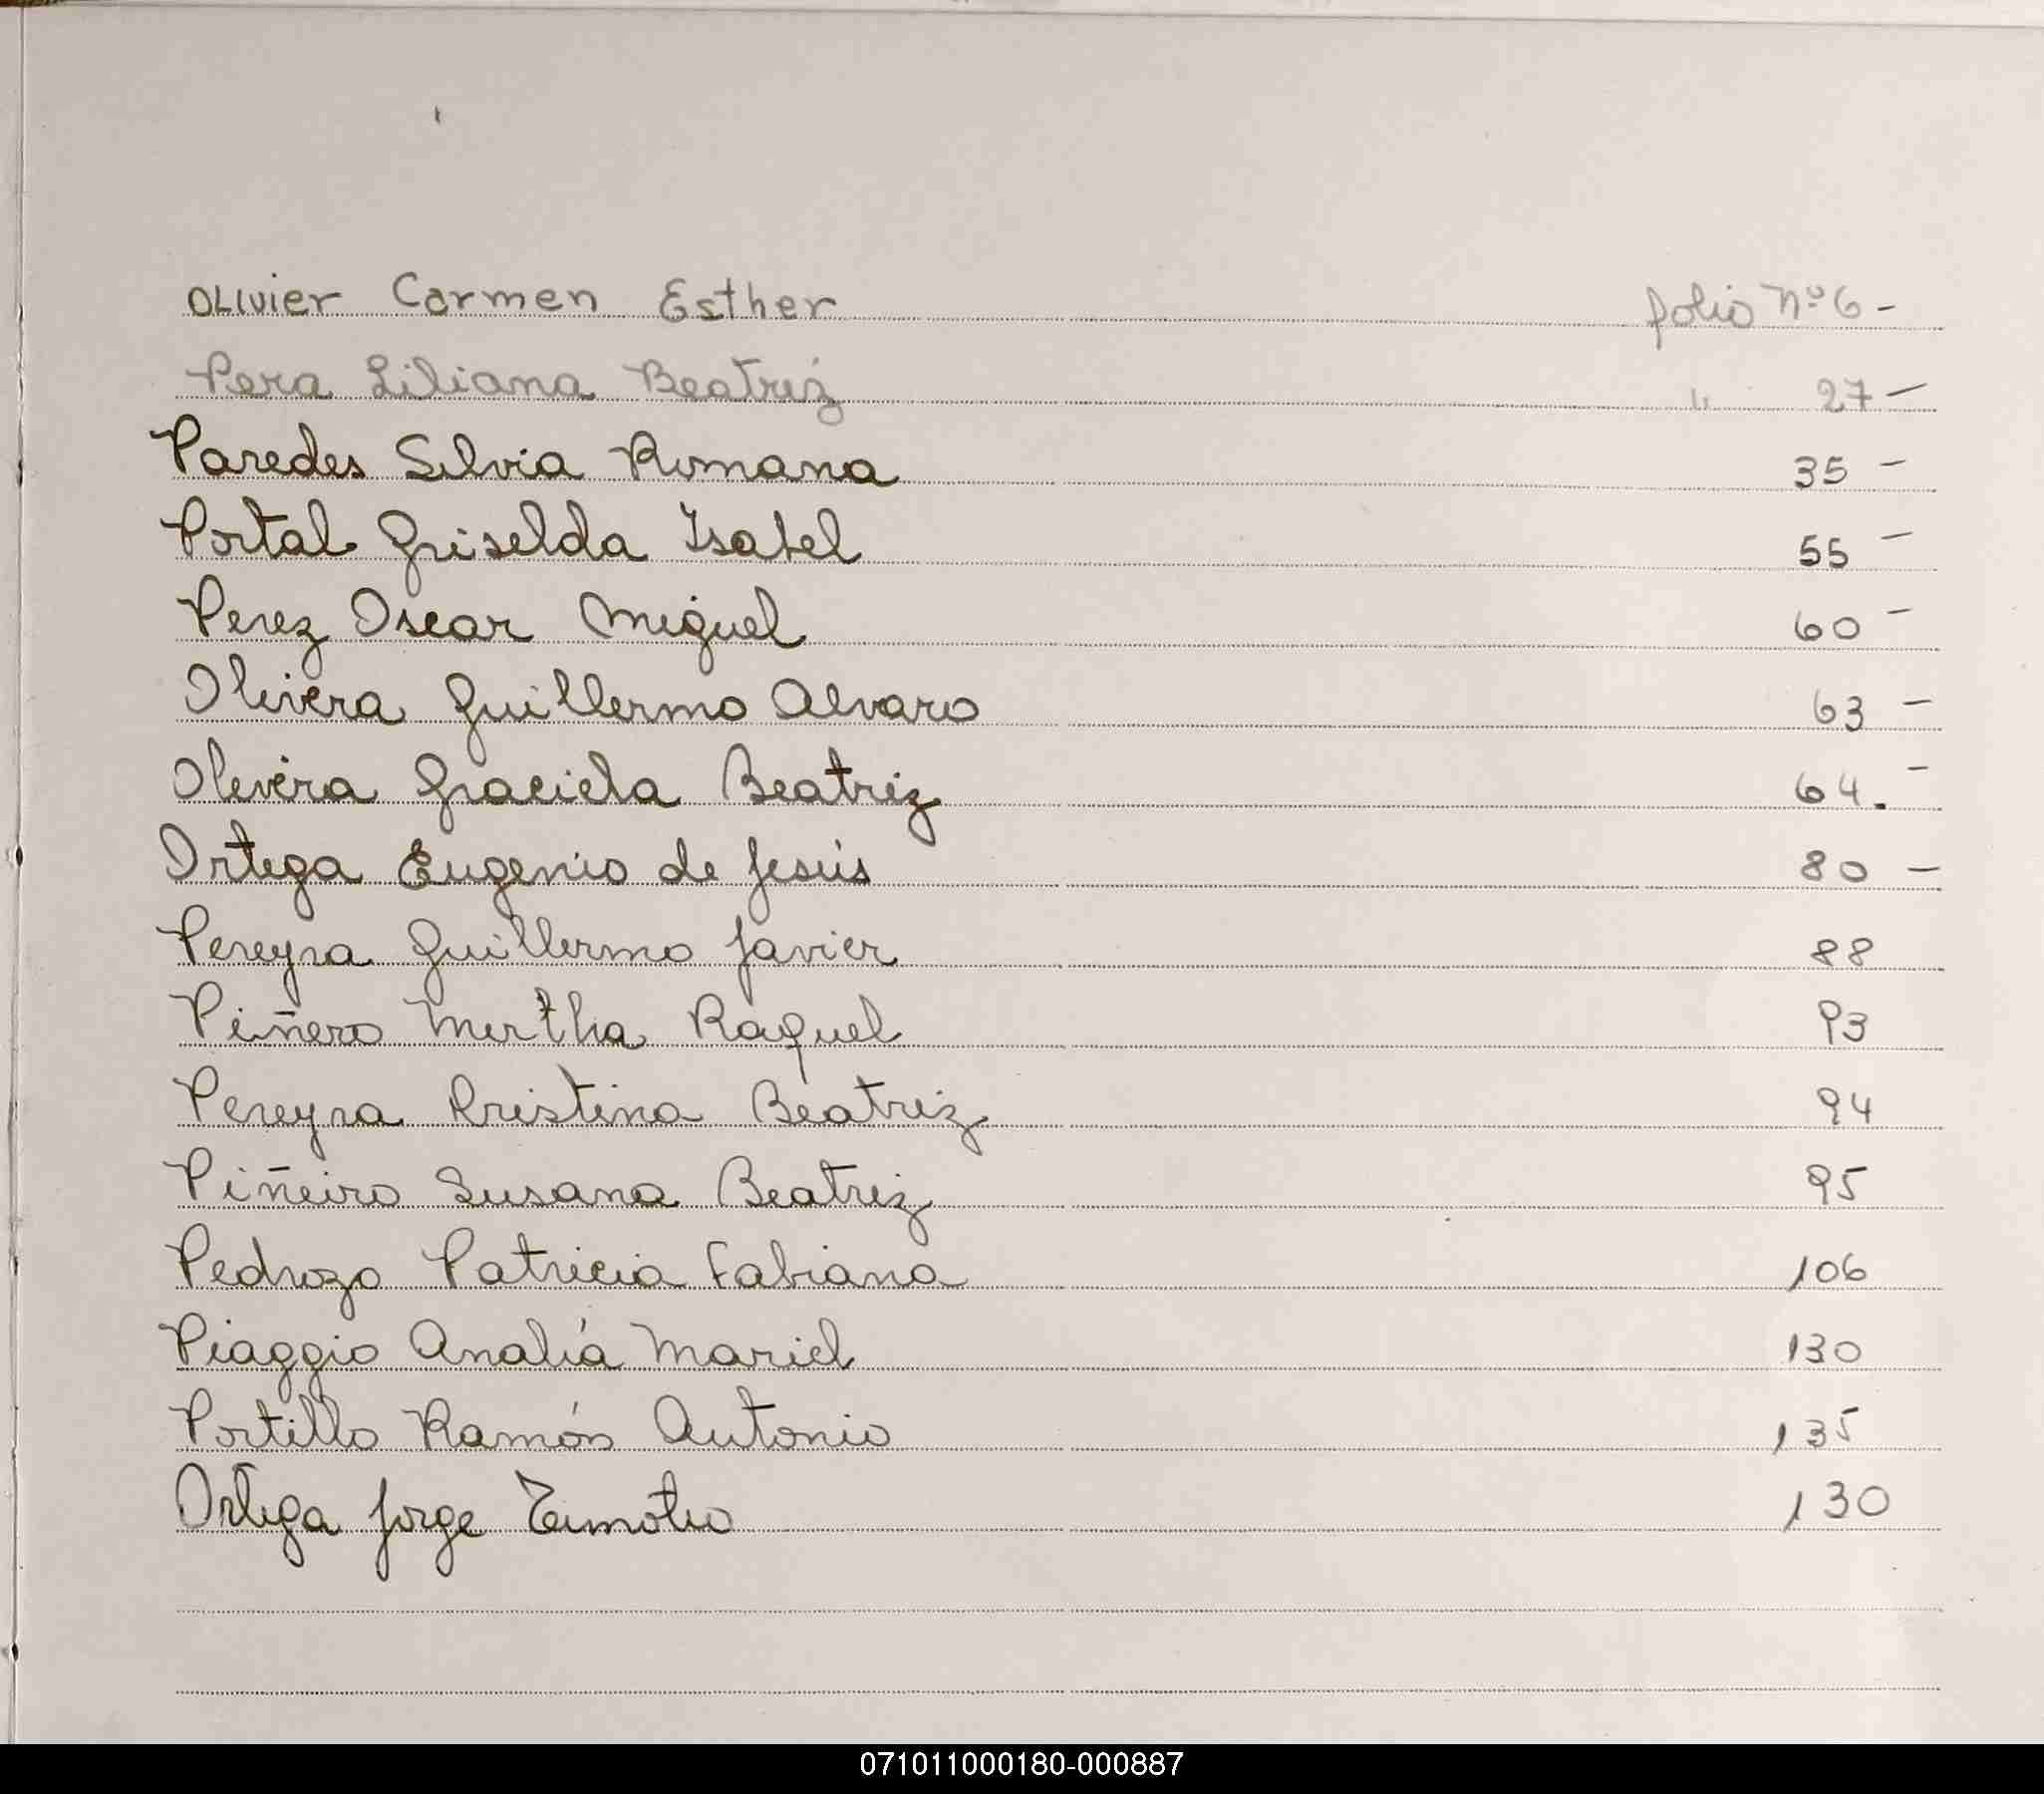 OLIVIER Carmen Esther folio Nº 6 -
Pera Liliana Beatríz " 27 -
Paredes Silvia Romana 35 -
Portal Griselda Isabel 55 -
Perez Oscar Miguel 60 -
Olivera Guillermo Alvaro 63 -
Olivera Graciela Beatriz 64. -
Ortega Eugenio de Jesús 80 -
Pereyra Guillermo Javier 88
Piñero Mirtha Raquel 93
Pereyra Cristina Beatriz 94
Piñeiro Susana Beatriz 95
Pedrozo Patricia Fabiana 106
Piaggio Analía Mariel 130
Portillo Ramón Antonio 135
Ortega Jorge Timoteo 130
071011000180-000887